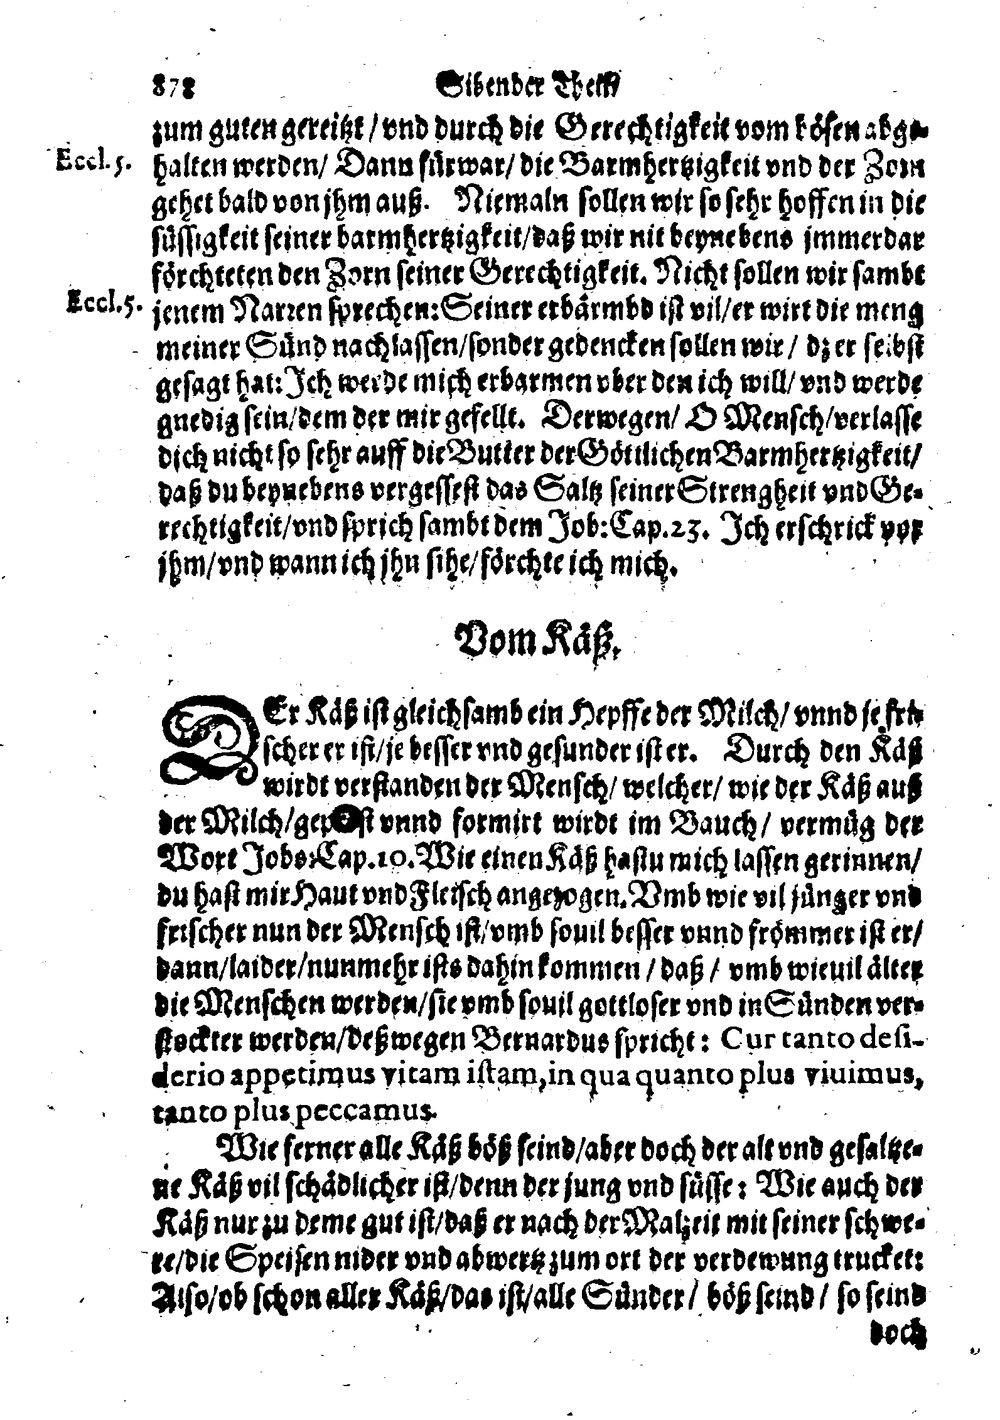 878 Sibender Theil
zum guten gereitzt / vnd durch die Gerechtigkeit vom bösen abge-
Eccl. 5. halten werden / Dann fürwar / die Barmhertzigkeit vnd der Zorn
gehet bald von jhm auß. Niemaln sollen wir so sehr hoffen in die
süssigkeit seiner barmhertzigkeit / daß wir nit beynebens jmmerdar
förchteten den Zorn seiner Gerechtigkeit. Nicht sollen wir sambt
Eccl. 5. jenem Narren sprechen: Seiner erbärmbd ist vil / er wirt die meng
meiner Sünd nachlassen / sonder gedencken sollen wir / dz er selbst
gesagt hat: Ich werde mich erbarmen vber den ich will / vnd werde
gnedig sein / dem der mir gefellt. Derwegen / O Mensch / verlasse
dich nicht so sehr auff die Butter der Göttlichen Barmhertzigkeit /
daß du beynebens vergessest das Saltz seiner Strengheit vnd Ge-
rechtigkeit / vnd sprich sambt dem Job: Cap. 23. Ich erschrick vor
jhm / vnd wann ich jhn sihe / förchte ich mich.
Vom Käß.
DEr Käß ist gleichsamb ein Hepffe der Milch / vnnd je fri-
scher er ist / je besser vnd gesunder ist er. Durch den Käß
wirdt verstanden der Mensch / welcher / wie der Käß auß
der Milch / geprest vnnd formirt wirdt im Bauch / vermüg der
Wort Jobs: Cap. 10. Wie einen Käß hastu mich lassen gerinnen /
du hast mir Haut vnd Fleisch angezogen. Vmb wie vil jünger vnd
frischer nun der Mensch ist / vmb souil besser vnnd frömmer ist er /
dann / laider / nunmehr ists dahin kommen / daß / vmb wieuil älter
die Menschen werden / sie vmb souil gottloser vnd in Sünden ver-
stockter werden / deßwegen Bernardus spricht: Cur tanto desi-
derio appetimus vitam istam, in qua quanto plus viuimus,
tanto plus peccamus.
Wie ferner alle Käß böß seind / aber doch der alt vnd gesaltze-
ne Käß vil schädlicher ist / denn der jung vnd süsse: Wie auch der
Käß nur zu deme gut ist / daß er nach der Malzeit mit seiner schwe-
re / die Speisen nider vnd abwertz zum ort der verdewung trucket:
Also / ob schon aller Käß / das ist / alle Sünder / böß seind / so seind
doch